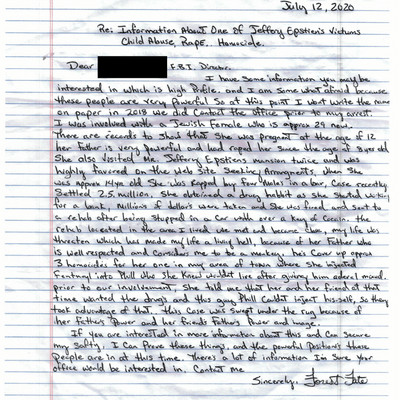 July 12, 2020
Re: Information About One Of Jeffery Epstien's Victims
Child Abuse, Rape, Homocide.
Dear F.B.I. Director.
I have some information you may be
interested in which is high Profile. and I am some what afraid because
these people are very Powerful So at this point I wont write the name
on paper in 2018 we did Contact the office prior to my arrest.
I was involved with a Jewish Female who is approx 29 now.
There are records to show that she was pregnant at the age of 12
her Father is very powerful and had raped her since the age of 8 yr old
She also visited Mr. Jeffery Epstiens mansion twice and was
highly favored on the Web Site Seeking Arrangments, when She
was approx 14yr old She was Rapped by four males in a bar, Case recently
Settled 2.5 million. She obtained a drug habbit as she started working
for a bank, millions of dollars were taken and She was fired, and Sent to
a rehab after being stopped in a Car with over a key of Cocain. the
rehab located in the area I lived we met and became close, my life was
threten which has made my life a living hell, because of her Father who
is well respected and Considers me to be a monkey, his Cover up approx
3 homocides for her one in my area of town where She injected
Fentnyl into Phill who She Knew wouldnt live after giving him aderal mixed.
prior to our involvement, She told me that her and her friend at that
time wanted the drugs and this guy Phill Couldnt inject his self, so they
took advantage of that. this Case was Swept under the rug because of
her Father's Power and her friends Father's Power and image.
If you are intrested in more information about this and Can secure
my Safty. I Can prove these things, and the powerful Positions these
People are in at this time. Theres a lot of information Im Sure your
office would be interested in. Contact me
Sincerely,